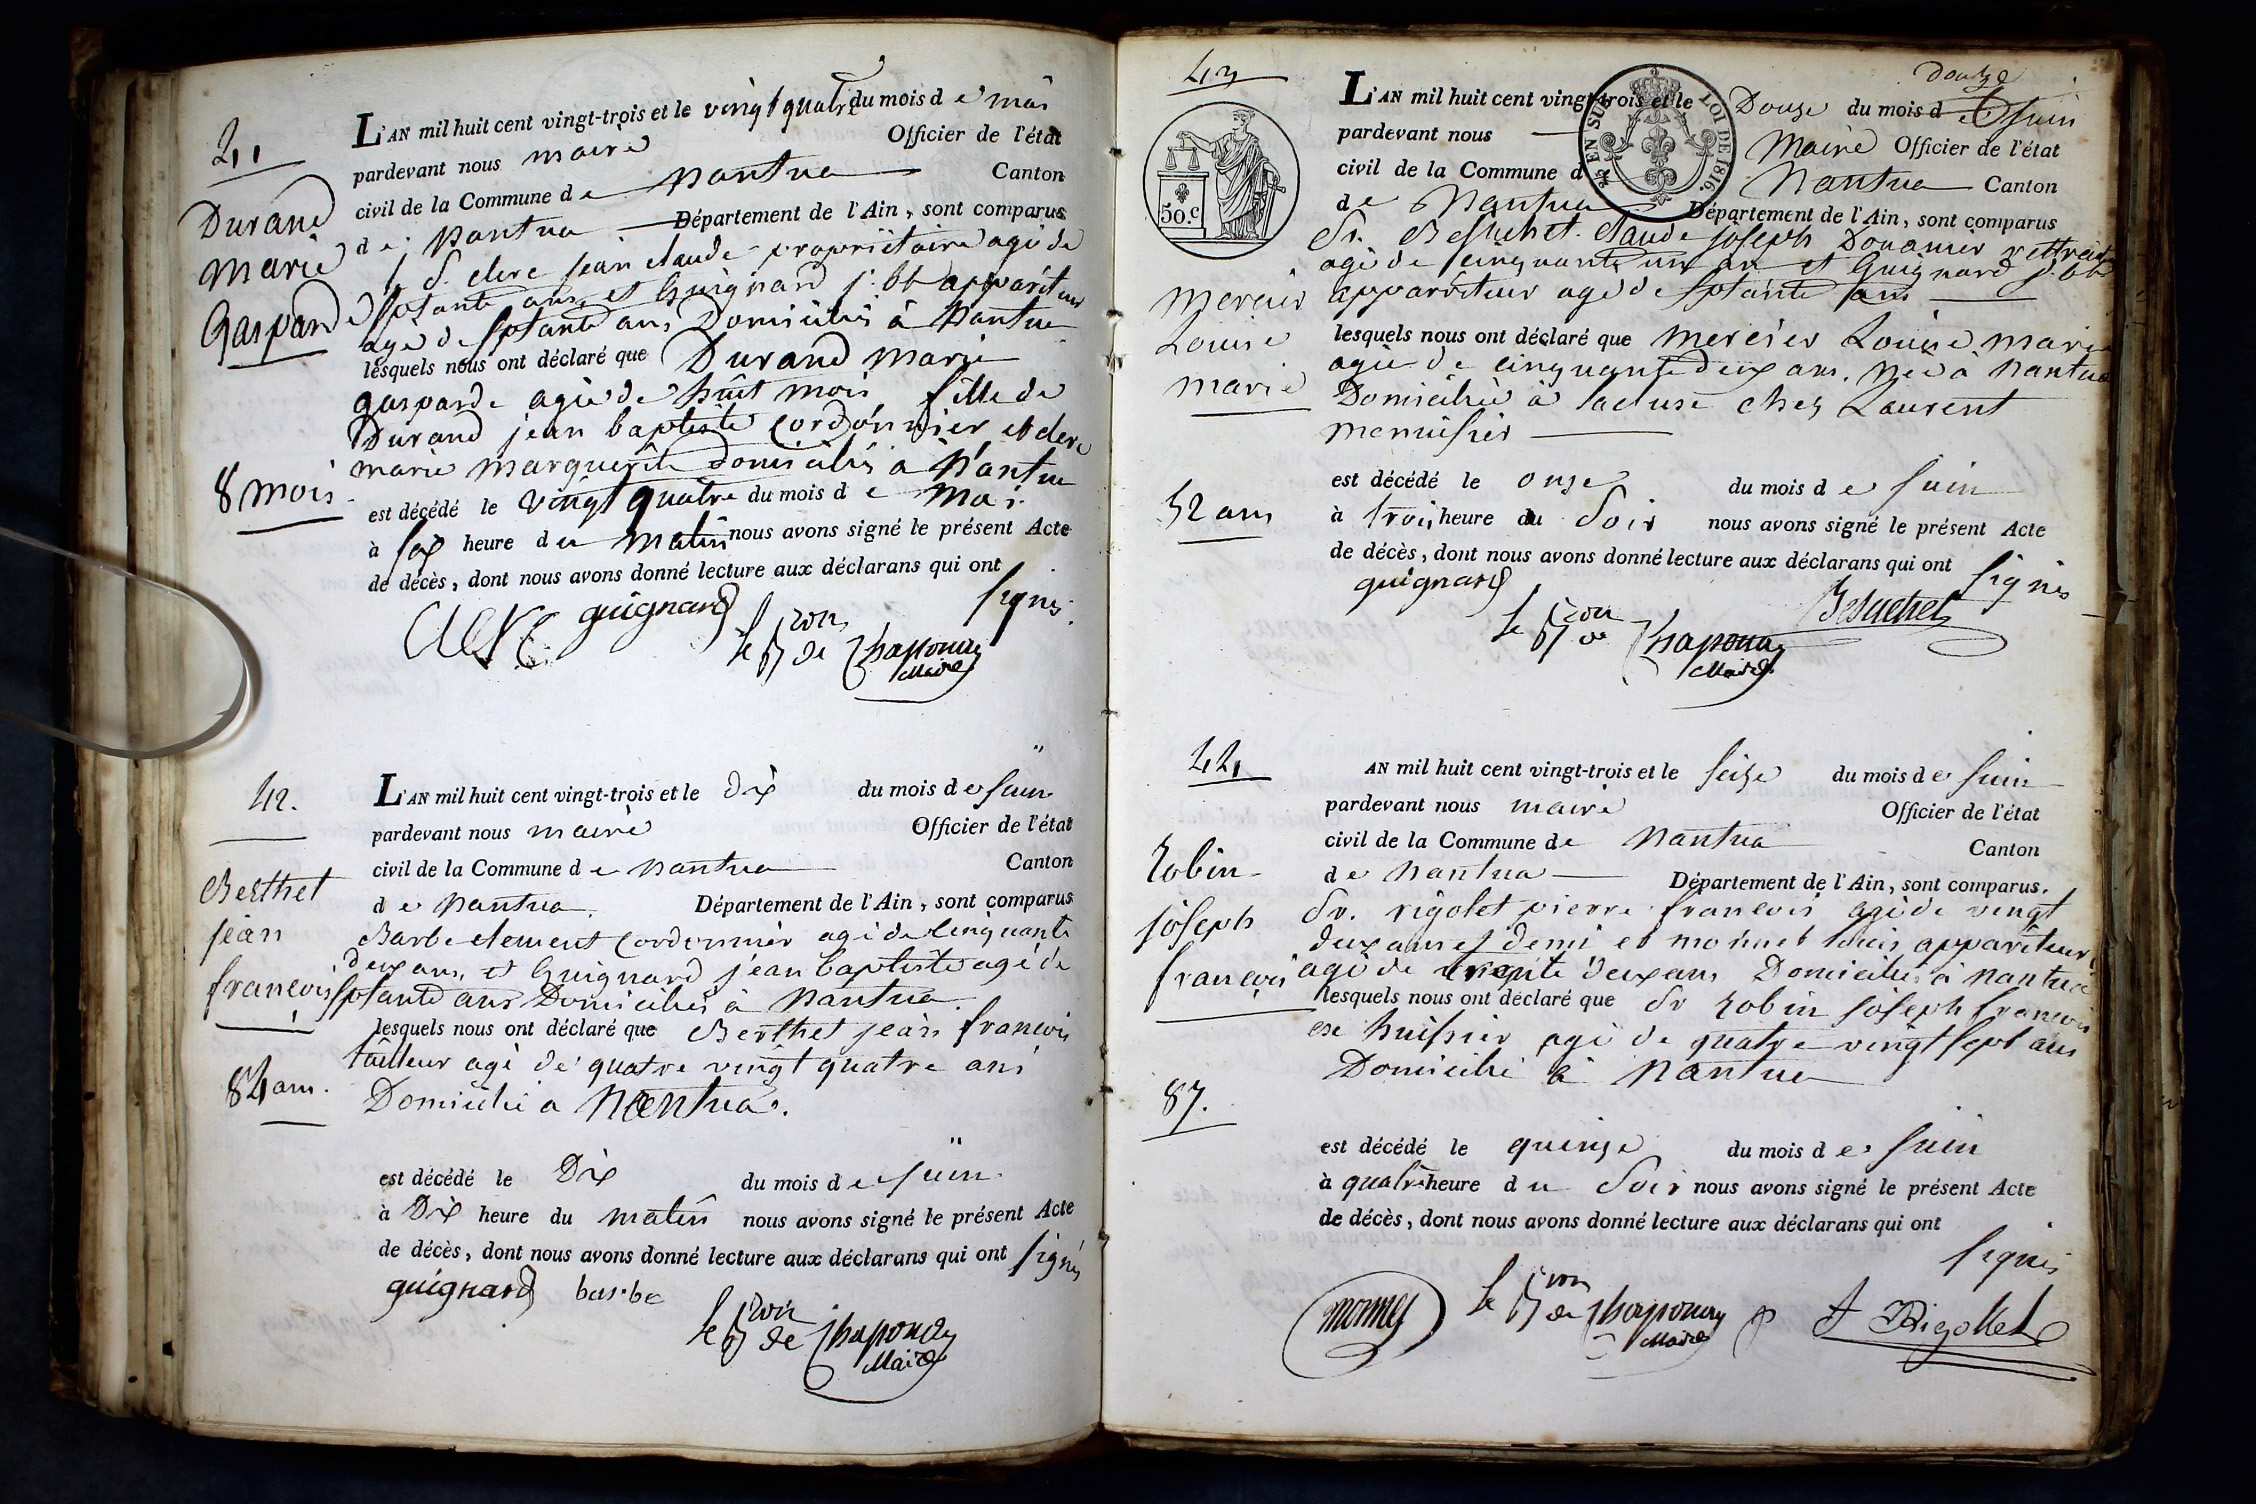 41
Durand
Marie
Gasparde
8 mois
L'AN mil huit cent vingt-trois et le vingt quatre du mois de mai
pardevant nous maire Officier de l'état
civil de la Commune de Nantua Canton
de Nantua Département de l'Ain, sont comparus
S. clerc jean claude propriétaire agé de
septante ans et Guignard j. bte appariteur
agé de septante ans Domiciliés à Nantua
lesquels nous ont déclaré que Durand Marie
gasparde agée de huit mois fille de
Durand jean baptiste cordonnier et clerc
marie marguerite domiciliés à Nantua
est décédé le vingt quatre du mois de Mai
à six heure du matin nous avons signé le présent Acte
de décès, dont nous avons donné lecture aux déclarans qui ont
signés.
Clerc guignard le Bon de Chaponay
Maire
42.
Berthet
jean
françois
84 ans.
L'AN mil huit cent vingt-trois et le dix du mois de juin
pardevant nous maire Officier de l'état
civil de la Commune de Nantua Canton
de Nantua. Département de l'Ain, sont comparus
Barbe clement Cordonnier agé de cinquante
deux ans, et Guignard jean baptiste agé de
septante ans Domiciliés à Nantua.
lesquels nous ont déclaré que Berthet jean françois
tailleur agé de quatre vingt quatre ans
Domicilié a Nantua.
est décédé le Dix du mois de juin
à Dix heure du matin nous avons signé le présent Acte
de décès, dont nous avons donné lecture aux déclarans qui ont signés
guignard barbe
le Bon de Chaponay
Maire
43
50.c
EN SUS LOI DE 1816.
Mercier
Louise
marie
52 ans
douze
L'AN mil huit cent vingt-trois et le Douze du mois de juin
pardevant nous Maire Officier de l'état
civil de la Commune d Nantua Canton
de Nantua Département de l'Ain, sont comparus
Sr. Besuchet Claude joseph Douanier rettraité
agé de cinquante un an et Guignard j. bte
appariteur agé de septante ans
lesquels nous ont déclaré que Mercier Louise marie
agée de cinquante deux ans. Née à Nantua
Domiciliée à lacluse chez Laurent
menuisier
est décédé le onze du mois de juin
à trois heure du Soir nous avons signé le présent Acte
de décès, dont nous avons donné lecture aux déclarans qui ont signés
guignard Besuchet
le Bon de Chaponay
Maire
44
Robin
joseph
françois
87.
AN mil huit cent vingt-trois et le seize du mois de juin
pardevant nous maire Officier de l'état
civil de la Commune de Nantua Canton
de Nantua Département de l'Ain, sont comparus.
Sr. rigolet pierre françois agé de vingt
deux ans et demi et monnet louis appariteur
agé de trente deux ans Domiciliés à Nantua
lesquels nous ont déclaré que Sr Robin joseph françois
ex huissier agé de quatre vingt sept ans
Domicilié à Nantua
est décédé le quinze du mois de juin
à quatre heure du Soir nous avons signé le présent Acte
de décès, dont nous avons donné lecture aux déclarans qui ont
signés
monnet le Bon de Chaponay Rigollet
Maire